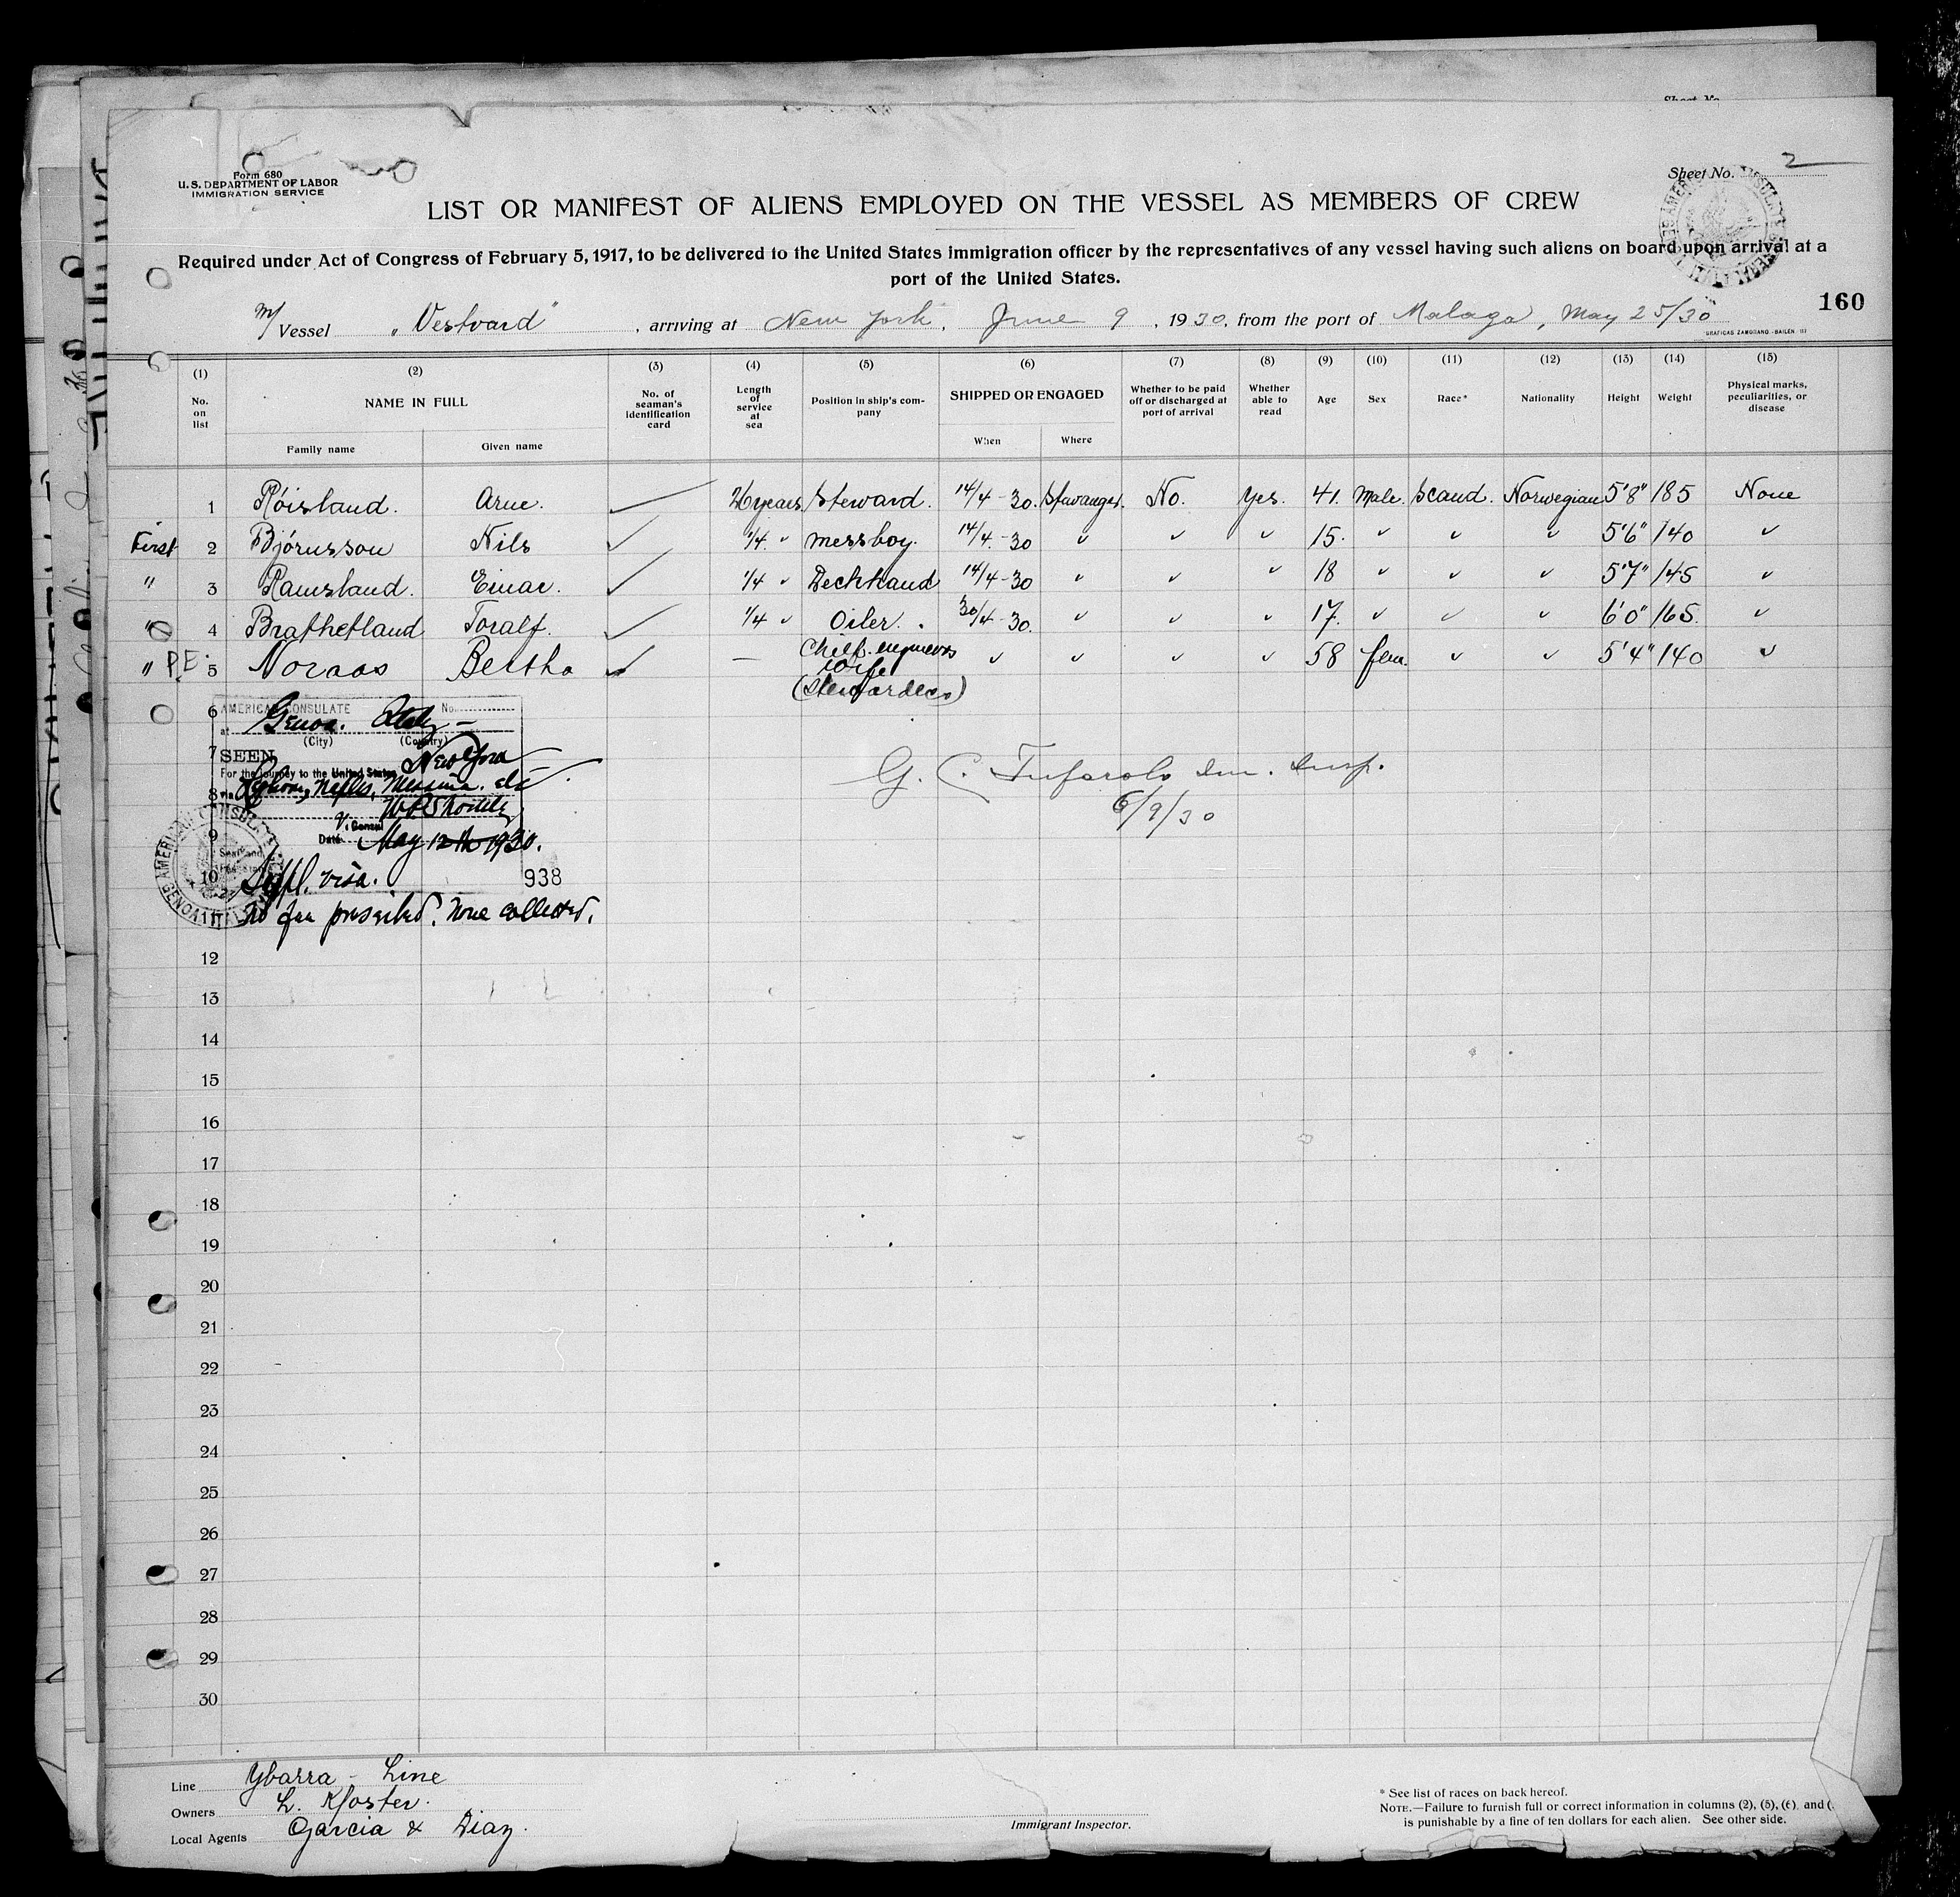 Sheet No.
Form 680
U. S. DEPARTMENT OF LABOR
IMMIGRATION SERVICE
Sheet No. 2
LIST OR MANIFEST OF ALIENS EMPLOYED ON THE VESSEL AS MEMBERS OF CREW
Required under Act of Congress of February 5, 1917, to be delivered to the United States immigration officer by the representatives of any vessel having such aliens on board upon arrival at a
port of the United States.
160
m/ Vessel "Vestvard", arriving at New York, June 9, 1930, from the port of Malaga, May 25/30
GRAFICAS ZAMBRANO.-BAILEN
(1) (2) (3) (4) (5) (6) (7) (8) (9) (10) (11) (12) (13) (14) (15)
No. on list NAME IN FULL Family name Given name No. of seaman's identification card Length of service at sea Position in ship's company SHIPPED OR ENGAGED When Where Whether to be paid off or discharged at port of arrival Whether able to read Age Sex Race* Nationality Height Weight Physical marks, peculiarities, or disease
1 Róisland. Arne. ✓ 26 years Steward. 14/4-30. Stavanger. No. Yes. 41. Male. Scand. Norwegian 5'8" 185 None
First 2 Bjórnsson Nils ✓ 1/4 " messboy. 14/4-30 " " " 15. " " " 5'6" 140 "
" 3 Ramsland. Einar. ✓ 1/4 " Deckhand 14/4-30 " " " 18 " " " 5'7" 145 "
" 4 Brathetland Toralf. ✓ 1/4 " Oiler. 30/4-30. " " " 17. " " " 6'0" 165. "
" P.E. 5 Noraas Bertha ✓ — Chief engineers wife (Stewardess) " " " " 58 fem. " " 5'4" 140 "
6 AMERICAN CONSULATE No.
at Genoa. Italy —
(City) (Country)
7 SEEN New York
For the journey to the United States
8 via Leghorn, Naples, Messina. etc
V. Consul
9 Date May 12th 1930.
10 Suppl. visa. 938
11 No fee prescribed. None collected.
AMERICAN CONSULATE GENOA ITALY
G. C. Tufarolo Im. Insp.
6/9/30
12
13
14
15
16
17
18
19
20
21
22
23
24
25
26
27
28
29
30
Line Ybarra - Line
Owners L. Kloster.
Local Agents Garcia & Diaz.
Immigrant Inspector.
* See list of races on back hereof.
NOTE.—Failure to furnish full or correct information in columns (2), (5), (6) and (
is punishable by a fine of ten dollars for each alien. See other side.